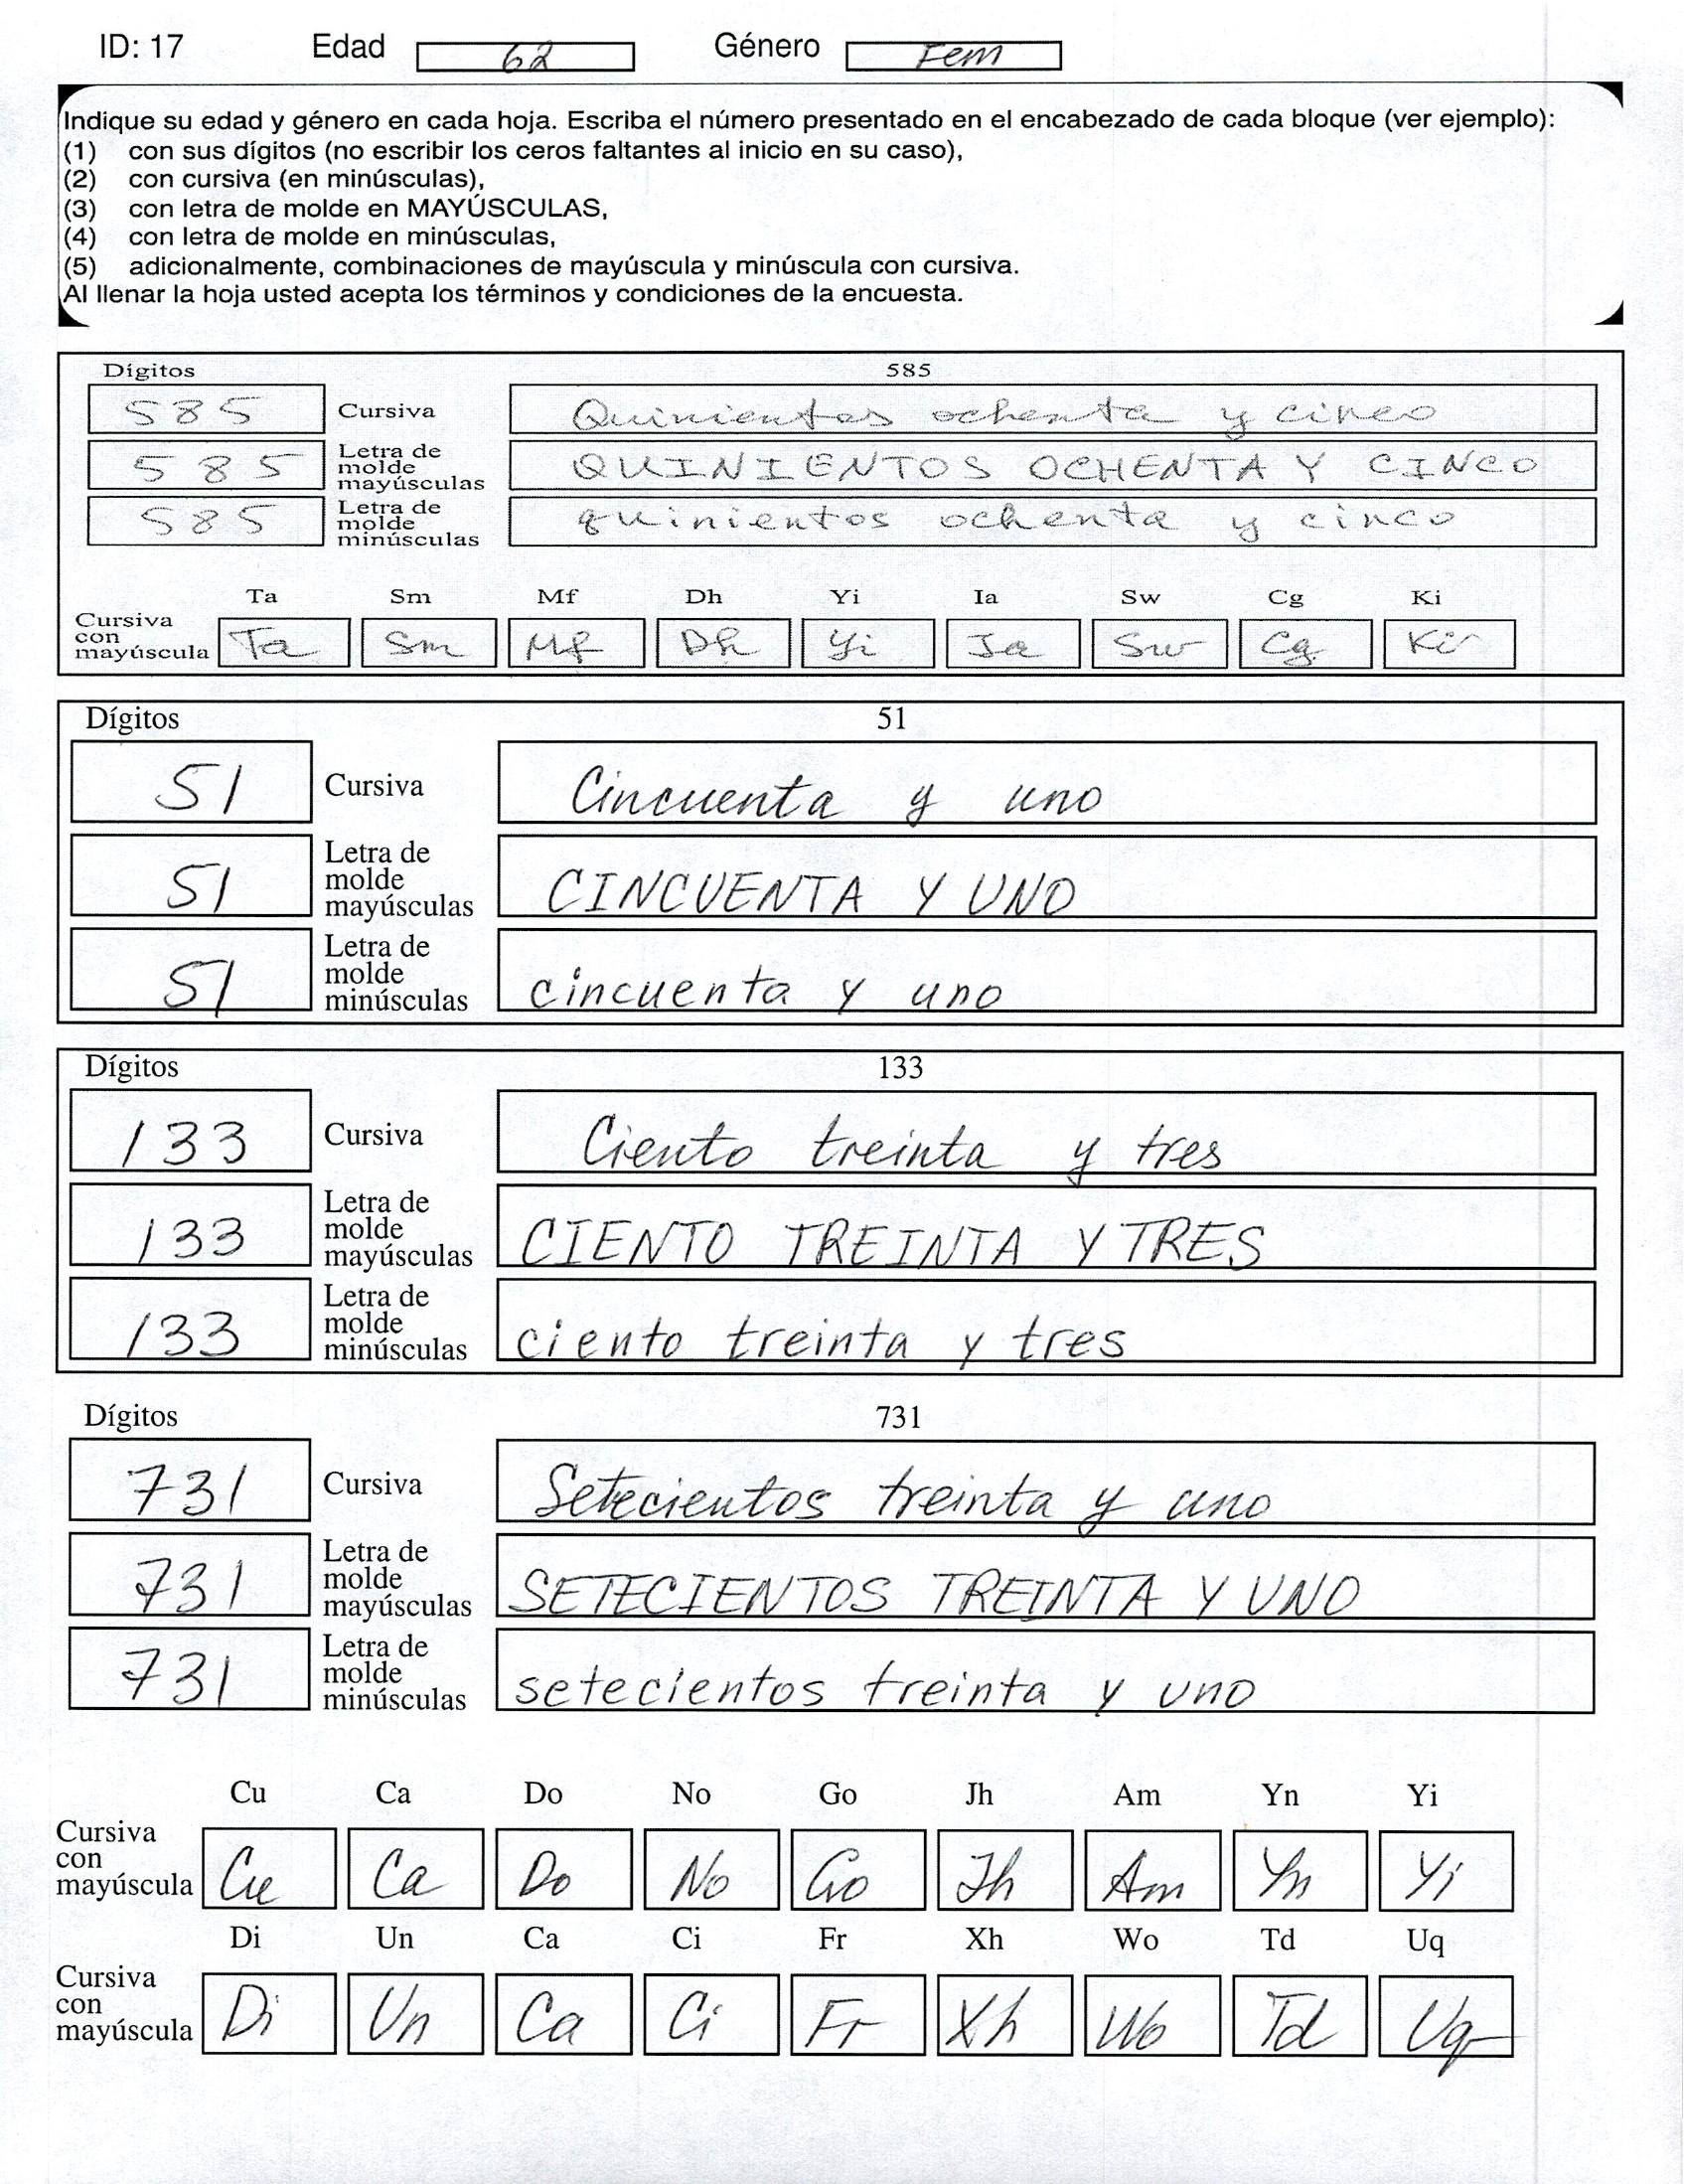 ID: 17 Edad 62 Género Fem
Indique su edad y género en cada hoja. Escriba el número presentado en el encabezado de cada bloque (ver ejemplo):
(1) con sus dígitos (no escribir los ceros faltantes al inicio en su caso),
(2) con cursiva (en minúsculas),
(3) con letra de molde en MAYÚSCULAS,
(4) con letra de molde en minúsculas,
(5) adicionalmente, combinaciones de mayúscula y minúscula con cursiva.
Al llenar la hoja usted acepta los términos y condiciones de la encuesta.
Dígitos 585
585 Cursiva Quinientos ochenta y cinco
585 Letra de molde mayúsculas QUINIENTOS OCHENTA Y CINCO
585 Letra de molde minúsculas quinientos ochenta y cinco
Ta Sm Mf Dh Yi Ia Sw Cg Ki
Cursiva con mayúscula Ta Sm Mf Dh Yi Ia Sw Cg Ki
Dígitos 51
51 Cursiva Cincuenta y uno
51 Letra de molde mayúsculas CINCUENTA Y UNO
51 Letra de molde minúsculas cincuenta y uno
Dígitos 133
133 Cursiva Ciento treinta y tres
133 Letra de molde mayúsculas CIENTO TREINTA Y TRES
133 Letra de molde minúsculas ciento treinta y tres
Dígitos 731
731 Cursiva Setecientos treinta y uno
731 Letra de molde mayúsculas SETECIENTOS TREINTA Y UNO
731 Letra de molde minúsculas setecientos treinta y uno
Cu Ca Do No Go Jh Am Yn Yi
Cursiva con mayúscula Cu Ca Do No Go Jh Am Yn Yi
Di Un Ca Ci Fr Xh Wo Td Uq
Cursiva con mayúscula Di Un Ca Ci Fr Xh Wo Td Uq